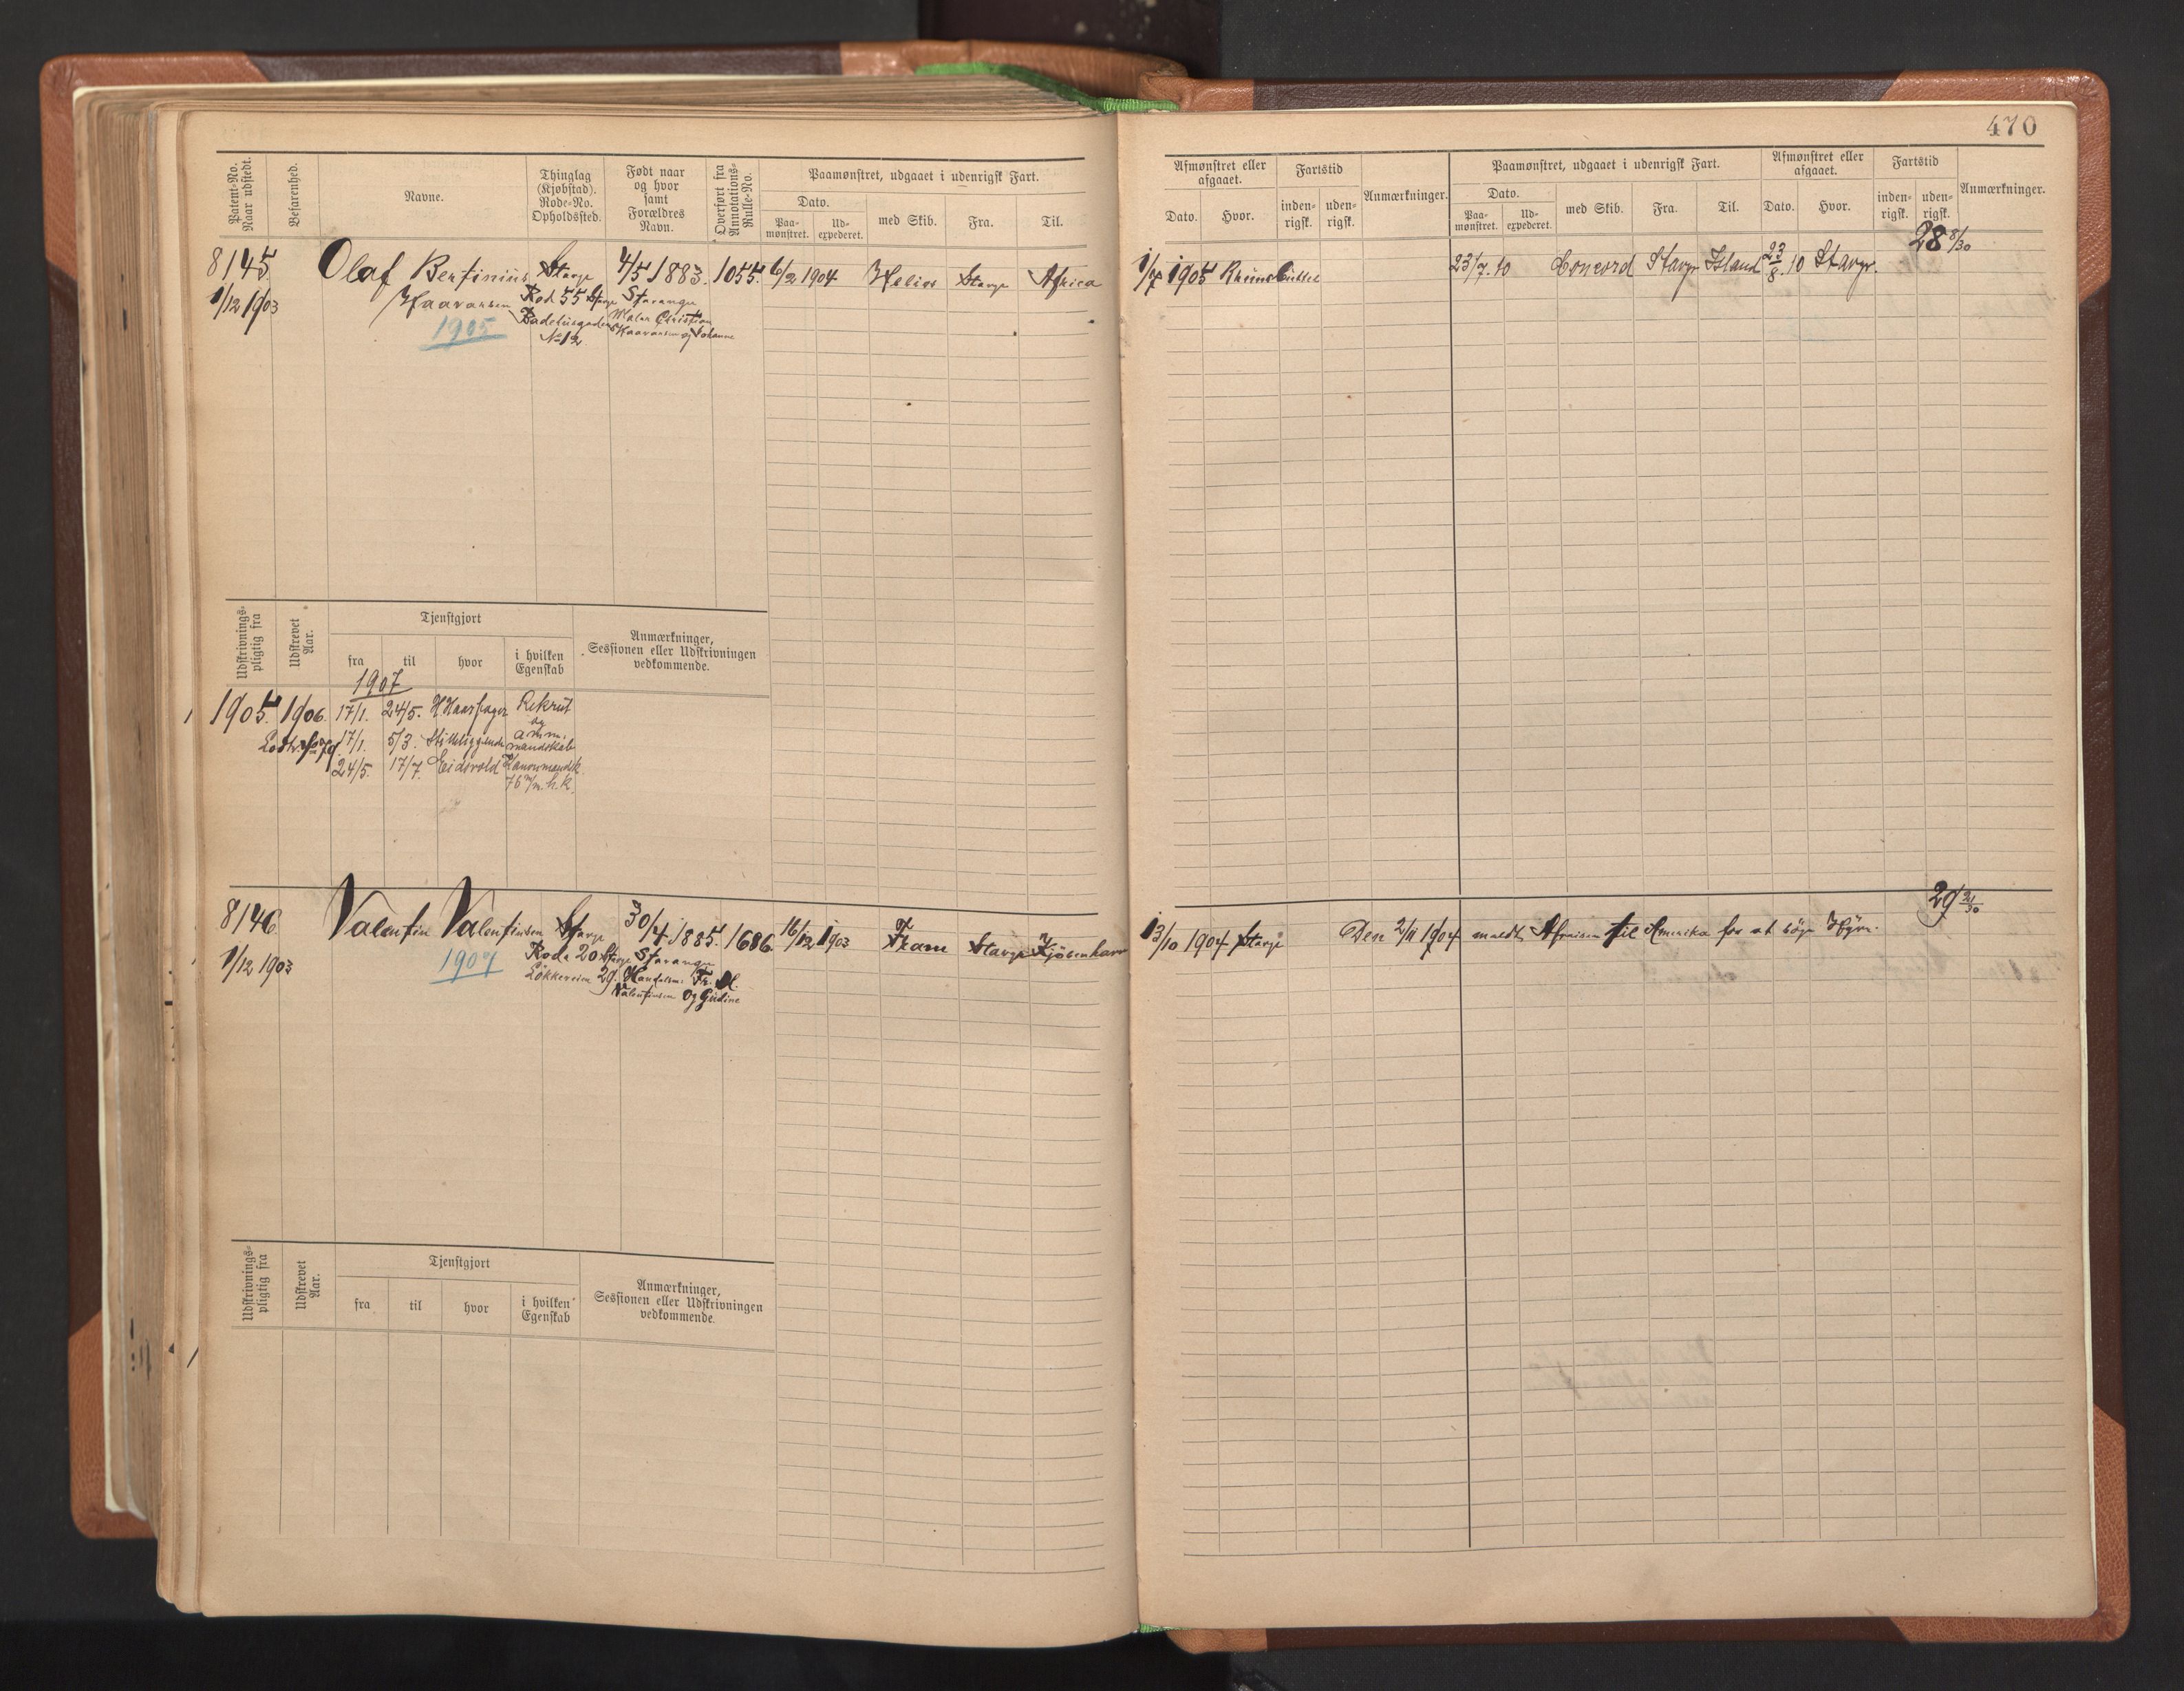 470
Patent-No.
Naar udstedt.
Befarenhed.
Navne.
Thinglag
(Kjøbstad).
Rode-No.
Opholdssted.
Født naar
og hvor
samt
Forældres
Navn.
Overført fra
Annotations-
Rulle-No.
Paamønstret, udgaaet i udenrigsk Fart.
Dato.
Paa-
mønstret.
Ud-
expederet.
med Skib.
Fra.
Til.
Afmønstret eller
afgaaet.
Dato.
Hvor.
Fartstid
inden-
rigsk.
uden-
rigsk.
Anmærkninger.
Paamønstret, udgaaet i udenrigsk Fart.
Dato.
Paa-
mønstret.
Ud-
expederet.
med Skib.
Fra.
Til.
Afmønstret eller
afgaaet.
Dato.
Hvor.
Fartstid
inden-
rigsk.
uden-
rigsk.
Anmærkninger.
8145
1/12 1903
Olaf Bentinius
Haavarsen
1905
Stavgr
Rod 55 Stvgr
No 12
4/5 1883.
Stavanger
Maler Christian
Haavarsen og Johanne
1055.
6/2 1904
Helios
Stavgr
Africa
1/7 1905
23/7.10
Concord
Stavgr
Island
23/8.10
Stavgr.
28 8/30
Udskrivnings-
pligtig fra
Udskrevet
Aar.
Tjenstgjort
fra
til
hvor
i hvilken
Egenskab
Anmærkninger,
Sessionen eller Udskrivningen
vedkommende.
1907
1905.
1906.
17/1.
24/5.
H Haarfager
Rekrut
og
17/1.
5/3.
Stilleliggende
amm.
mandskab
24/5.
17/7.
Eidsvold
Kanonmandsk.
76 m/m. h.k.
8146
1/12 1903
Valentin Valentinsen
1907
Stavgr
Rode 20 Stvgr
Løkkeveien 29.
30/4 1885.
Stavanger
Handelsm: Fr. M.
Valentinsen og Gudine
1686
16/12 1903
Fram
Stavgr
Kjöbenhavn
13/10 1904
Stavgr
Den 2/11 1904 meldt Afreisen til Amerika for at söge Hyre.
29 21/30
Udskrivnings-
pligtig fra
Udskrevet
Aar.
Tjenstgjort
fra
til
hvor
i hvilken
Egenskab
Anmærkninger,
Sessionen eller Udskrivningen
vedkommende.